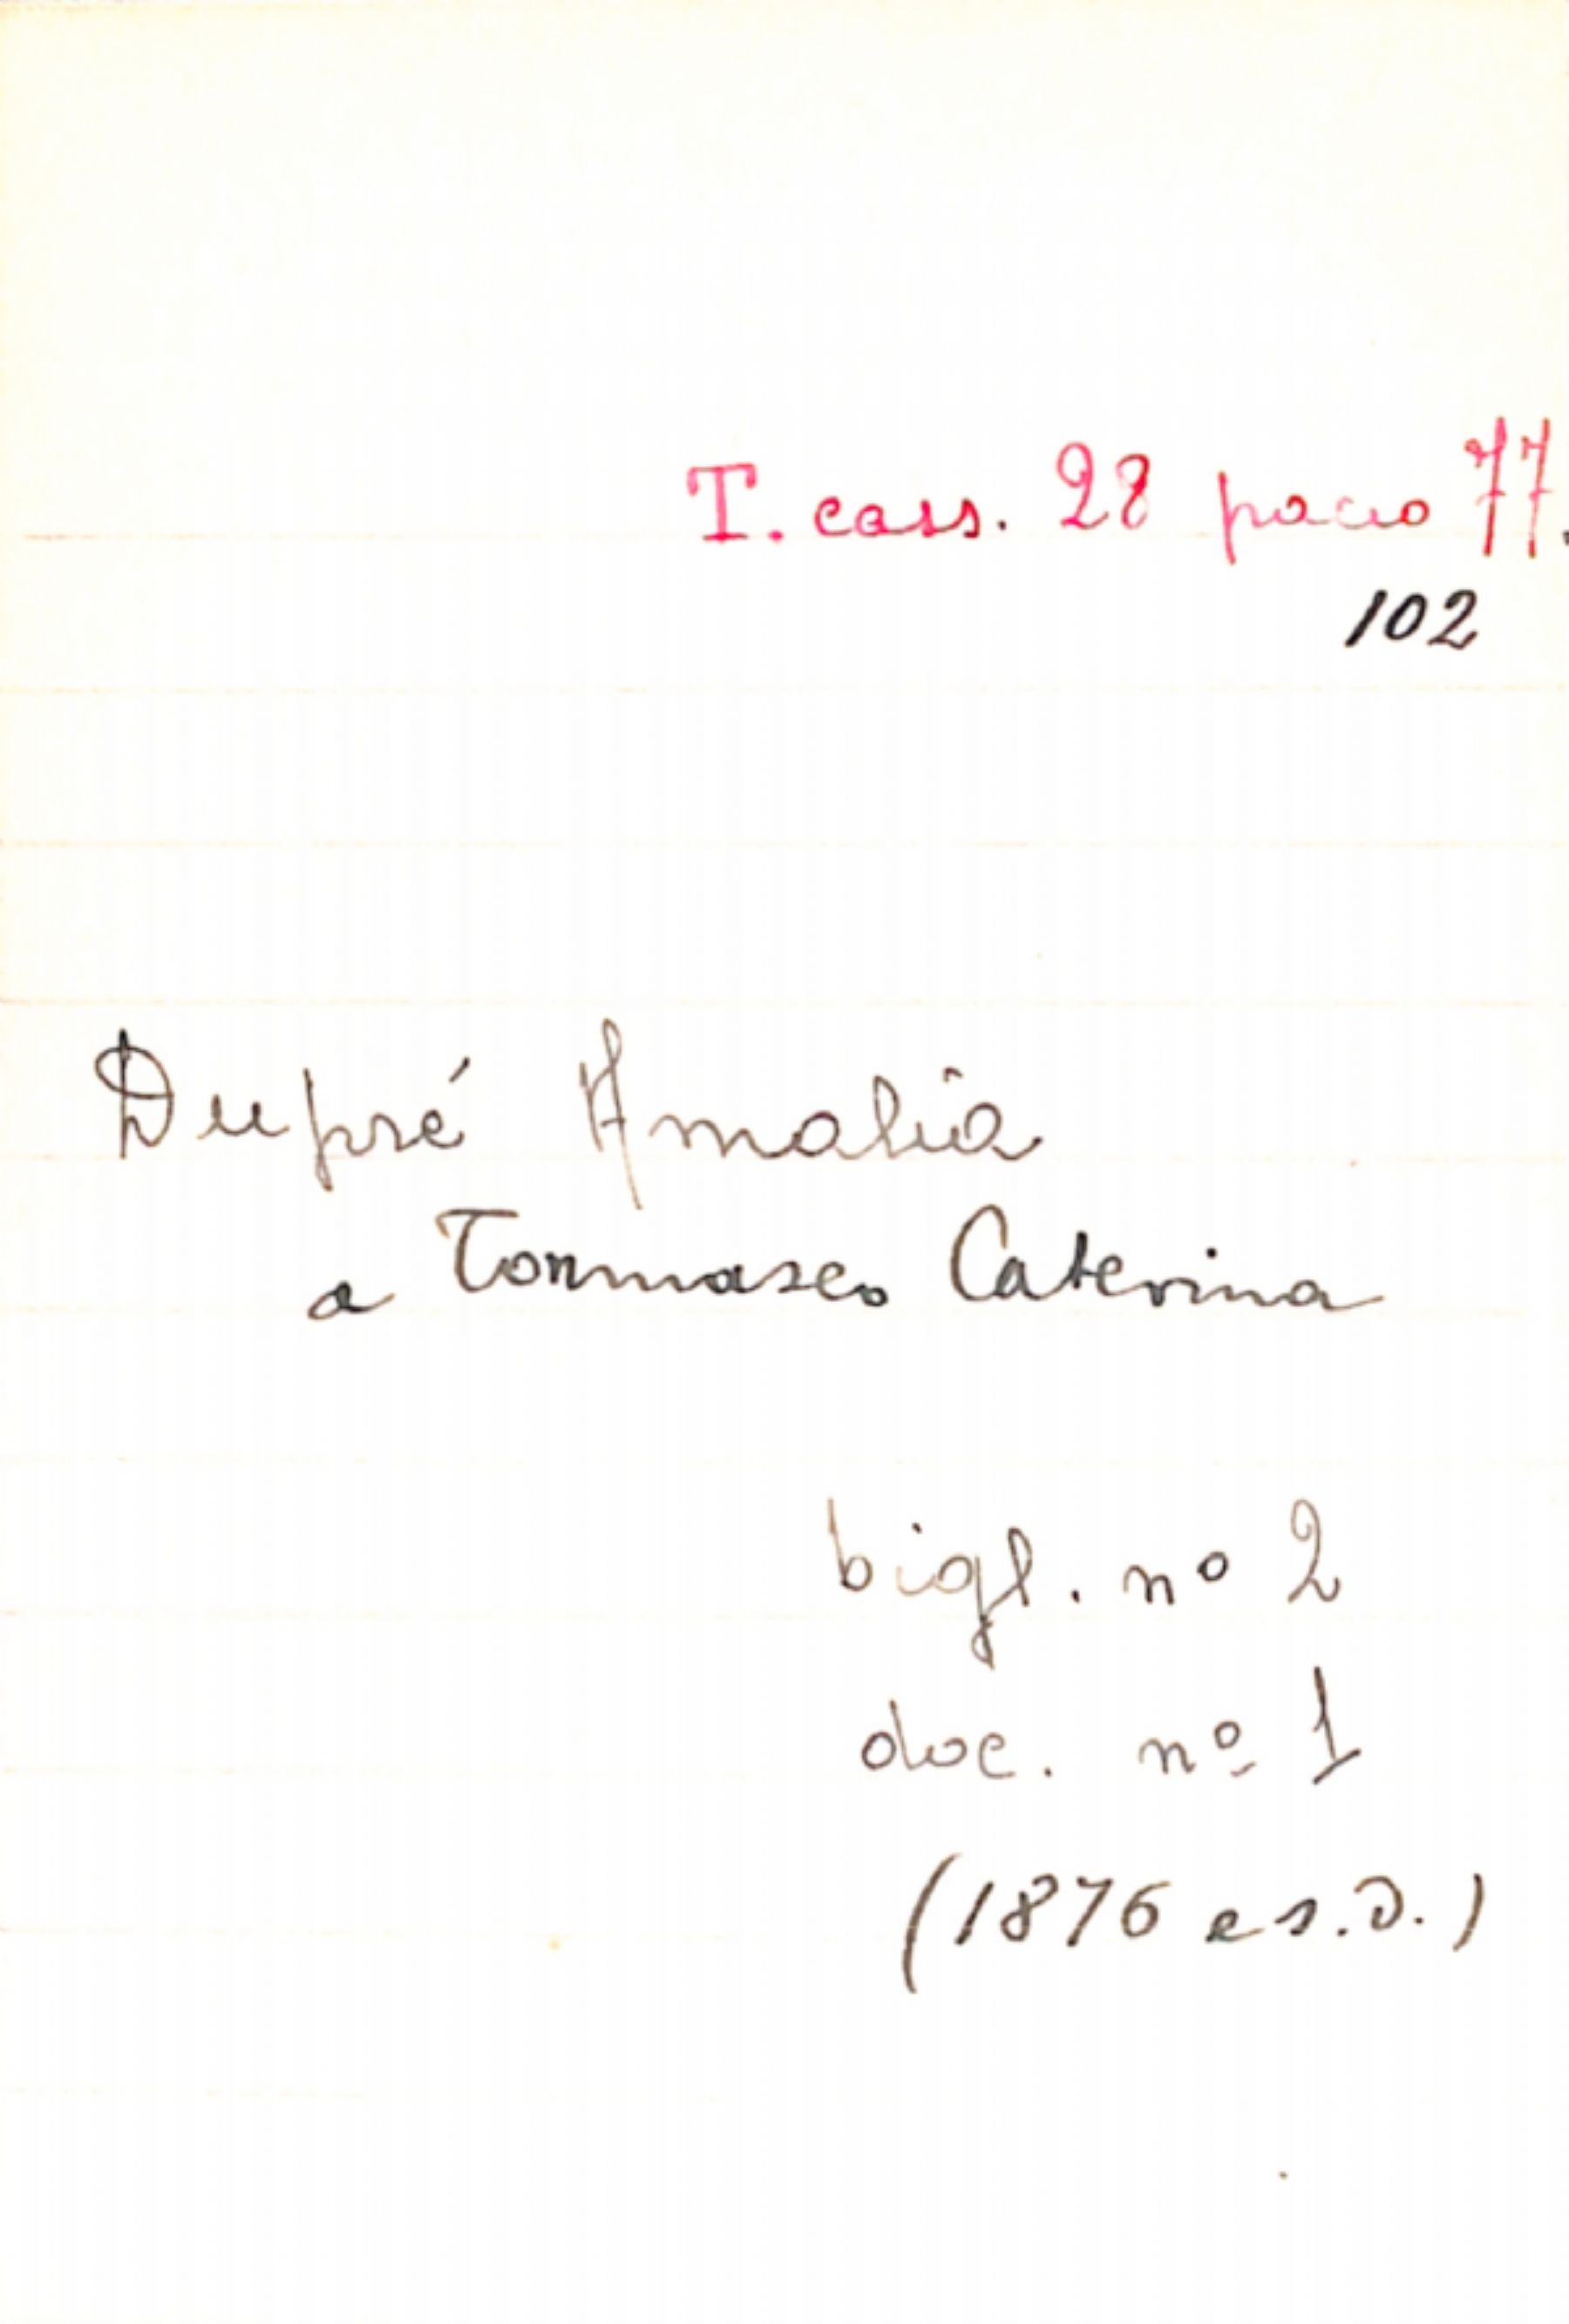 T. cass. 28 pacco 77.
102
Dupré Amalia
a Tommaseo Caterina
bigl. nº 2
doc. nº 1
(1876 e s.d.)